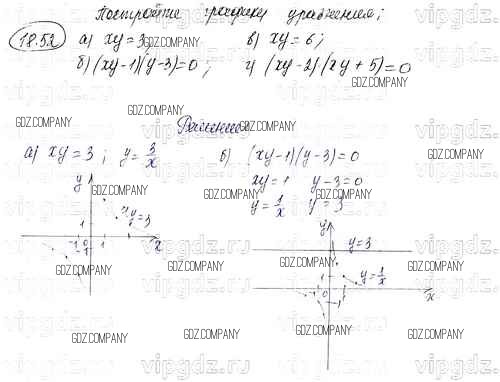 Постройте графики уравнения;
18.52 а) xy=3; в) xy=6;
б) (xy-1)(y-3)=0; г) (xy-2)(xy+5)=0
Решение
а) xy=3; y=3/x б) (xy-1)(y-3)=0
xy=1 y-3=0
y=1/x y=3
y xy=3
1
-1 0 1 x
-1
y
y=3
1 y=1/x
0 1 x
GDZ.COMPANY
vipgdz.ru